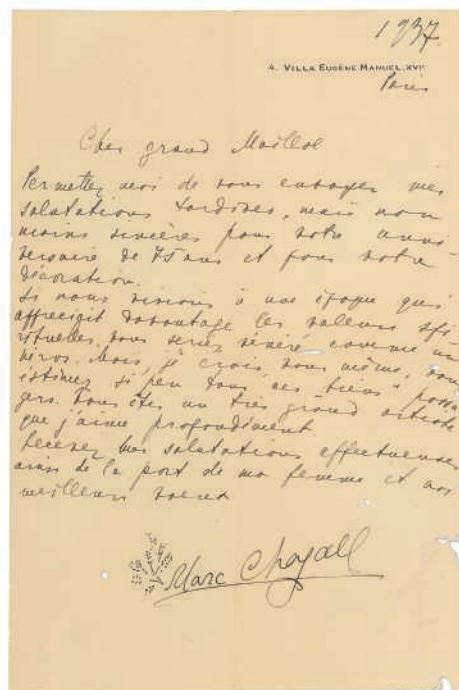 1937.
4. VILLA EUGÈNE MANUEL. XVIᵉ
Paris
Cher grand Maillol
Permettez moi de vous envoyer mes
salutations tardives, mais non
moins sincères pour votre anni-
versaire de 75 ans et pour votre
décoration.
Si nous vivions à une époque qui
affrecigit davantage les valeurs spi
rituelles, vous seriez vénéré comme un
héros. Mais, je crois, vous même, vous
estimez si peu tous ces biens "passa
gers. Vous êtes un très grand artiste
que j'aime profondément.
Recevez mes salutations affectueuses
ainsi de la part de ma femme et nos
meilleurs voeux
Marc Chagall